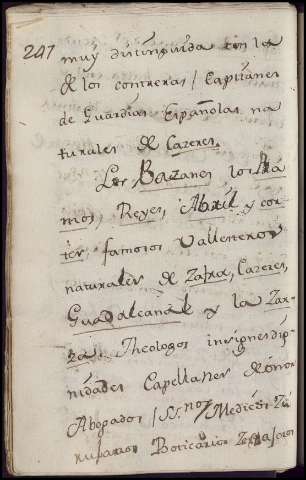 247
muy distinguida con la
de los contreras / Capitanes
de Guardias Españolas na
turales de Cazeres.
Los Bazanes los Rá
mos, Reyes, Abril y cor
tes, famosos Vallesteros
naturales de Zafra, Cazeres,
Guadalcanal y la Zar
za. Theologos insignes dig
nidades Capellanes de onor
Abogados / SS.nos / Medicos Zi
rujanos Boticarios